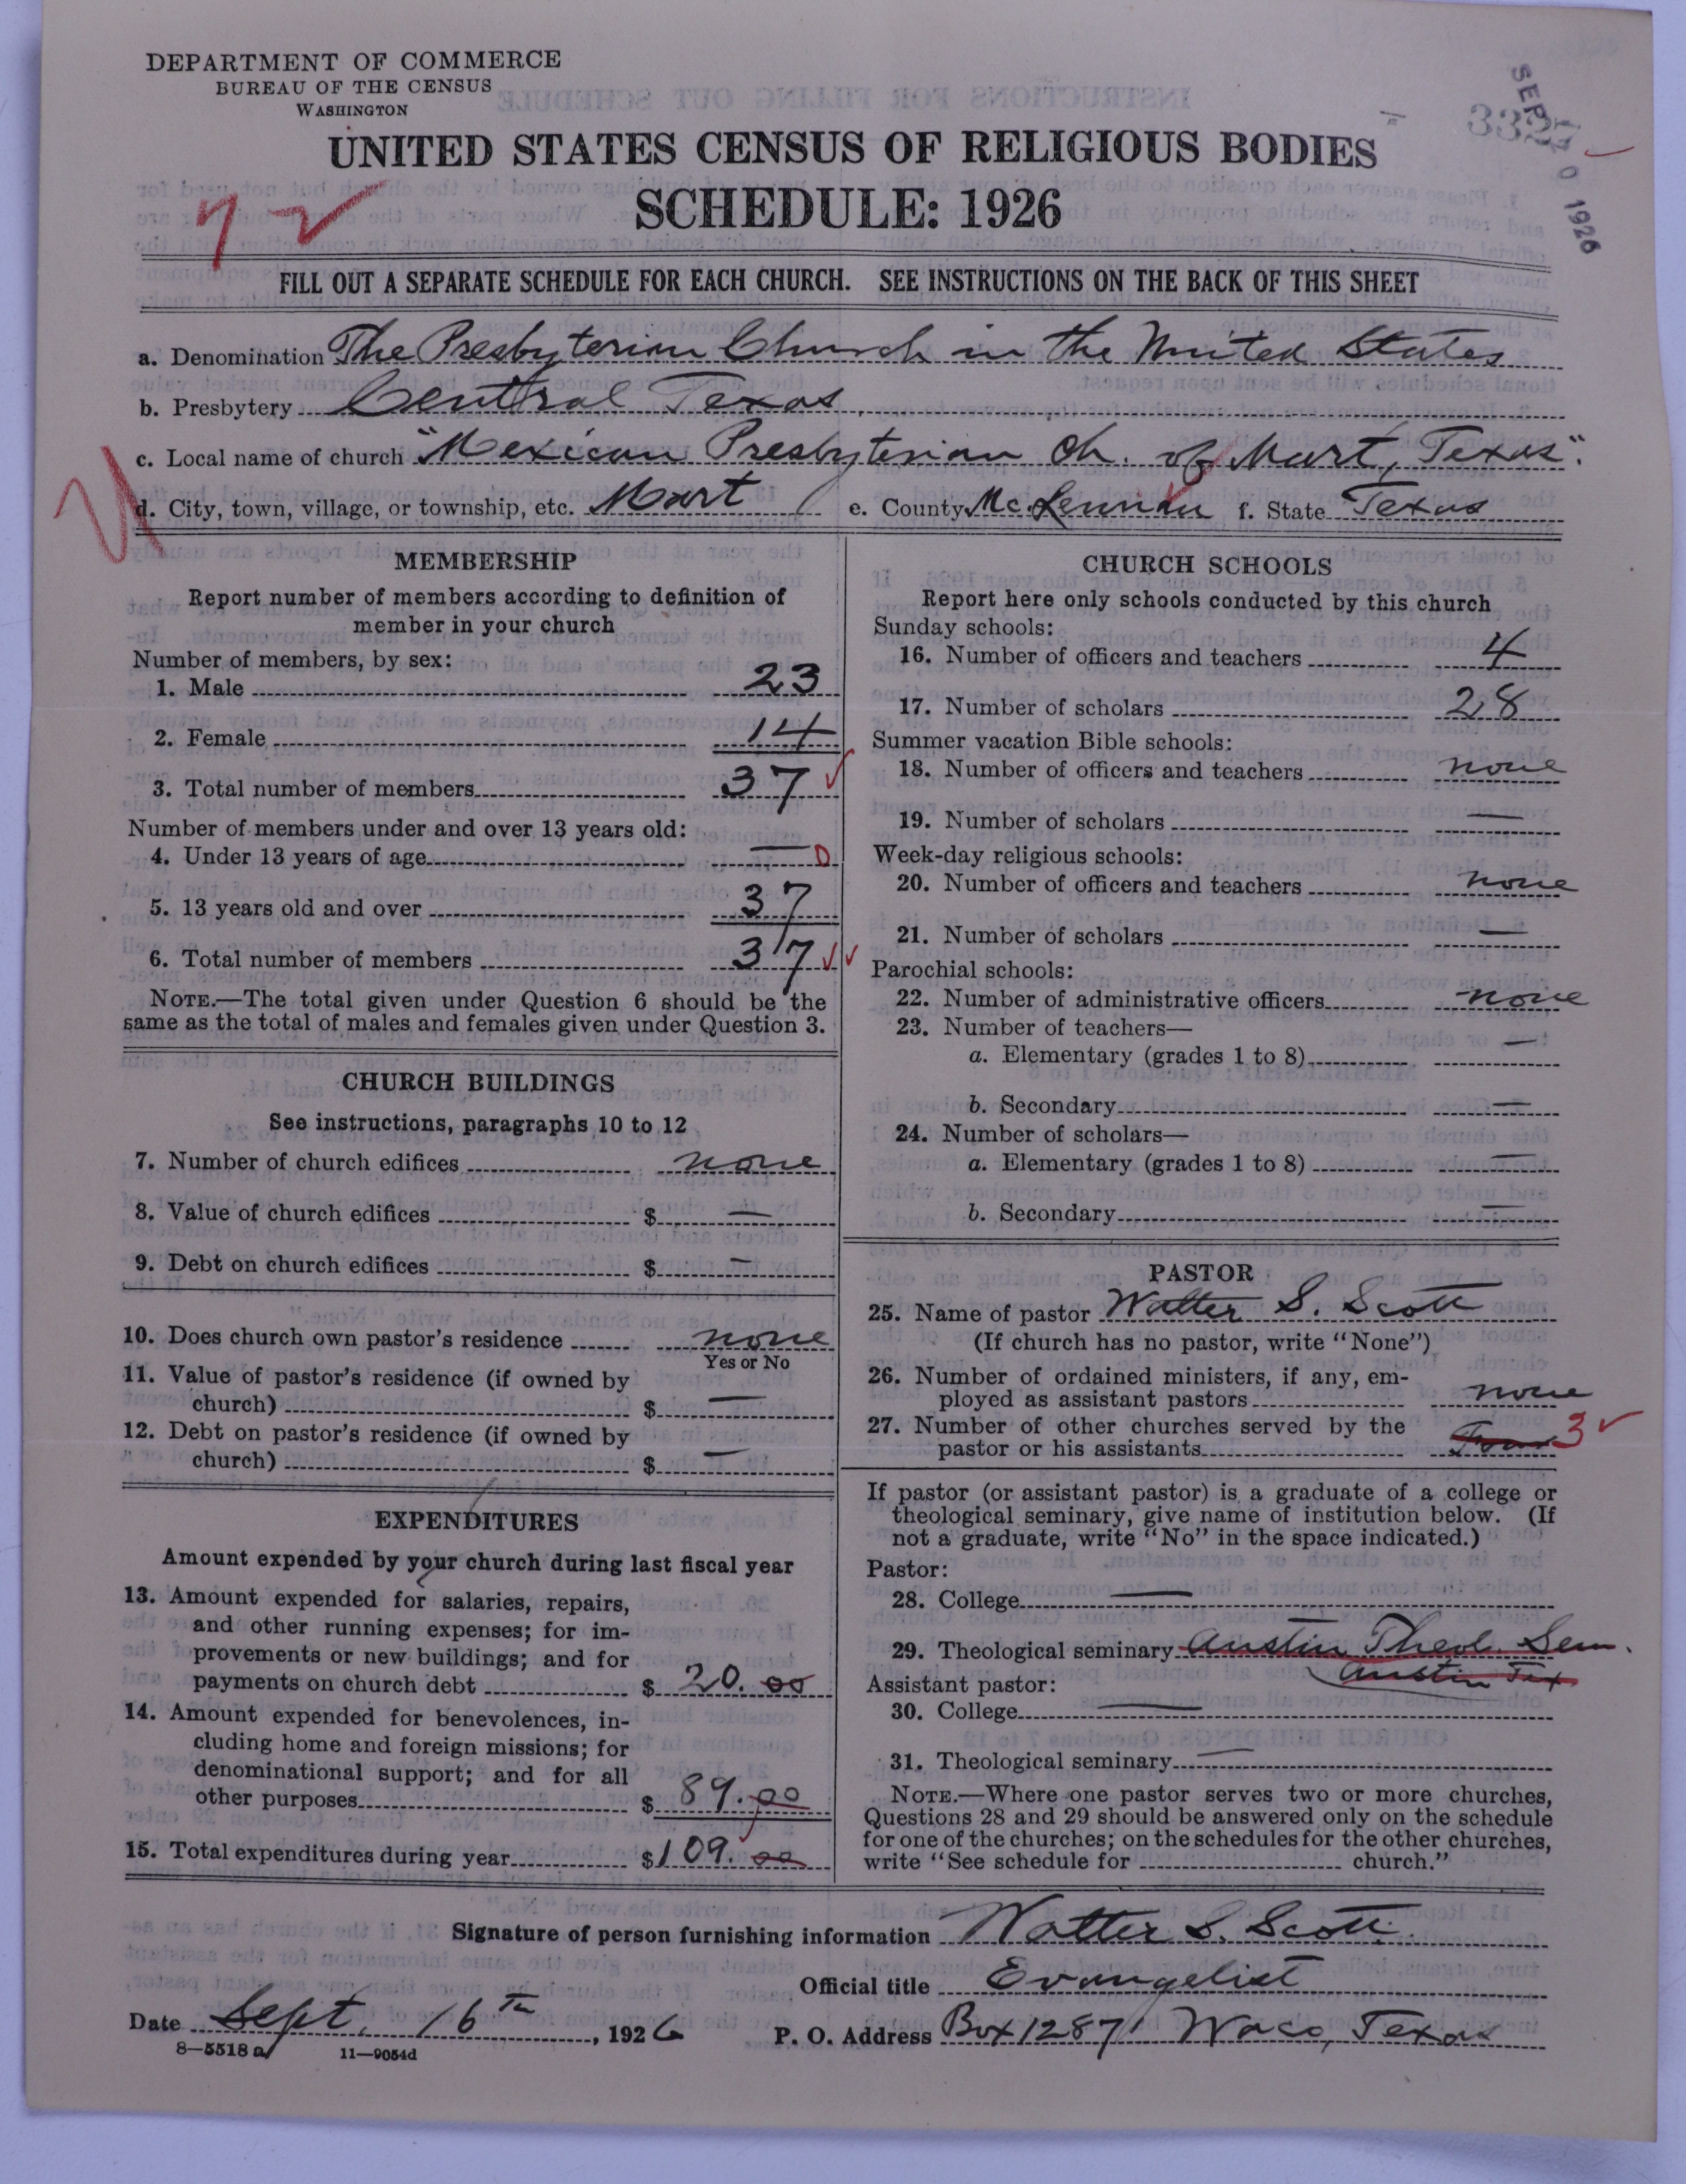 DEPARTMENT OF COMMERCE
BUREAU OF THE CENSUS
WASHINGTON
UNITED STATES CENSUS OF RELIGIOUS BODIES
SCHEDULE: 1926
FILL OUT A SEPARATE SCHEDULE FOR EACH CHURCH. SEE INSTRUCTIONS ON THE BACK OF THIS SHEET
a. Denomination The Presbyterian Church in the United States
b. Presbytery Central Texas,
c. Local name of church "Mexican Presbyterian Ch. of Mart, Texas".
d. City, town, village, or township, etc. Mart e. County McLennan f. State Texas
MEMBERSHIP
Report number of members according to definition of
member in your church
Number of members, by sex:
1. Male 23
2. Female 14
3. Total number of members 37
Number of members under and over 13 years old:
4. Under 13 years of age — 0
5. 13 years old and over 37
6. Total number of members 37
NOTE.—The total given under Question 6 should be the
same as the total of males and females given under Question 3.
CHURCH BUILDINGS
See instructions, paragraphs 10 to 12
7. Number of church edifices none
8. Value of church edifices $ —
9. Debt on church edifices $ —
10. Does church own pastor's residence none
Yes or No
11. Value of pastor's residence (if owned by
church) $ —
12. Debt on pastor's residence (if owned by
church) $ —
EXPENDITURES
Amount expended by your church during last fiscal year
13. Amount expended for salaries, repairs,
and other running expenses; for im-
provements or new buildings; and for
payments on church debt $ 20.00
14. Amount expended for benevolences, in-
cluding home and foreign missions; for
denominational support; and for all
other purposes $ 89.00
15. Total expenditures during year $109.00
CHURCH SCHOOLS
Report here only schools conducted by this church
Sunday schools:
16. Number of officers and teachers 4
17. Number of scholars 28
Summer vacation Bible schools:
18. Number of officers and teachers none
19. Number of scholars —
Week-day religious schools:
20. Number of officers and teachers none
21. Number of scholars —
Parochial schools:
22. Number of administrative officers none
23. Number of teachers—
a. Elementary (grades 1 to 8) —
b. Secondary —
24. Number of scholars—
a. Elementary (grades 1 to 8) —
b. Secondary —
PASTOR
25. Name of pastor Walter S. Scott
(If church has no pastor, write "None")
26. Number of ordained ministers, if any, em-
ployed as assistant pastors none
27. Number of other churches served by the
pastor or his assistants 3
If pastor (or assistant pastor) is a graduate of a college or
theological seminary, give name of institution below. (If
not a graduate, write "No" in the space indicated.)
Pastor:
28. College —
29. Theological seminary Austin Theol. Sem.
Austin Tex
Assistant pastor:
30. College —
31. Theological seminary —
NOTE.—Where one pastor serves two or more churches,
Questions 28 and 29 should be answered only on the schedule
for one of the churches; on the schedules for the other churches,
write "See schedule for church."
Signature of person furnishing information Walter S. Scott.
Official title Evangelist
Date Sept. 16th, 1926 P. O. Address Box 1287 Waco, Texas
8—5518 a 11—9054d